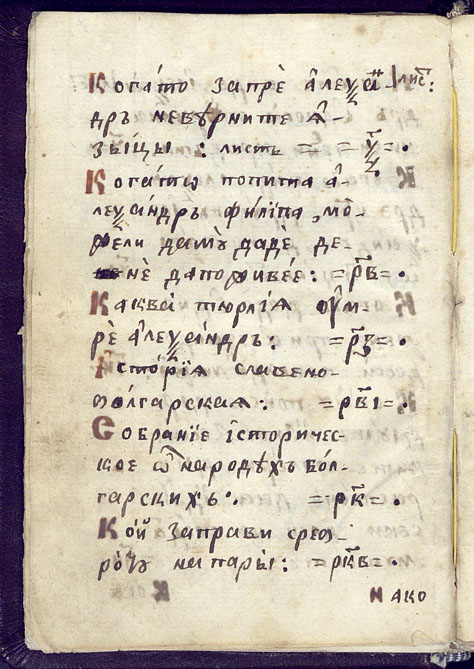 Когато запрѐ а҆леѯан лис҃т:
дръ невѣрните ꙗ҆-
зы́цы : листъ =  =.
Когатѡ попита а҆-
леѯандръ филіпа, мо-
жели дамꙋ дадѐ де-
нѐ дапоживеѐ: =р҃в=.
Каква̀ тюрлїѧ ᲂу҆м-
рѐ а҆леѯа́ндръ: =р҃з=.
Їсторїѧ славено-
болгарскаѧ: =рв҃і=.
Собранїе їсторичес-
кое ѿ народꙋхъ бол-
гарскихъ: =р҃к=.
Кой заправи
на пары̀: =рк҃в=.
Нако